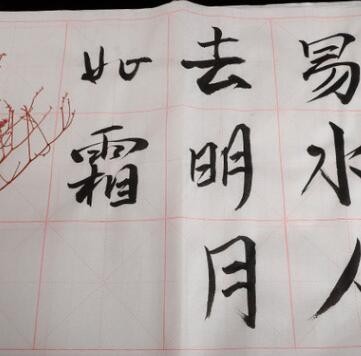 易水人
去明月
如霜